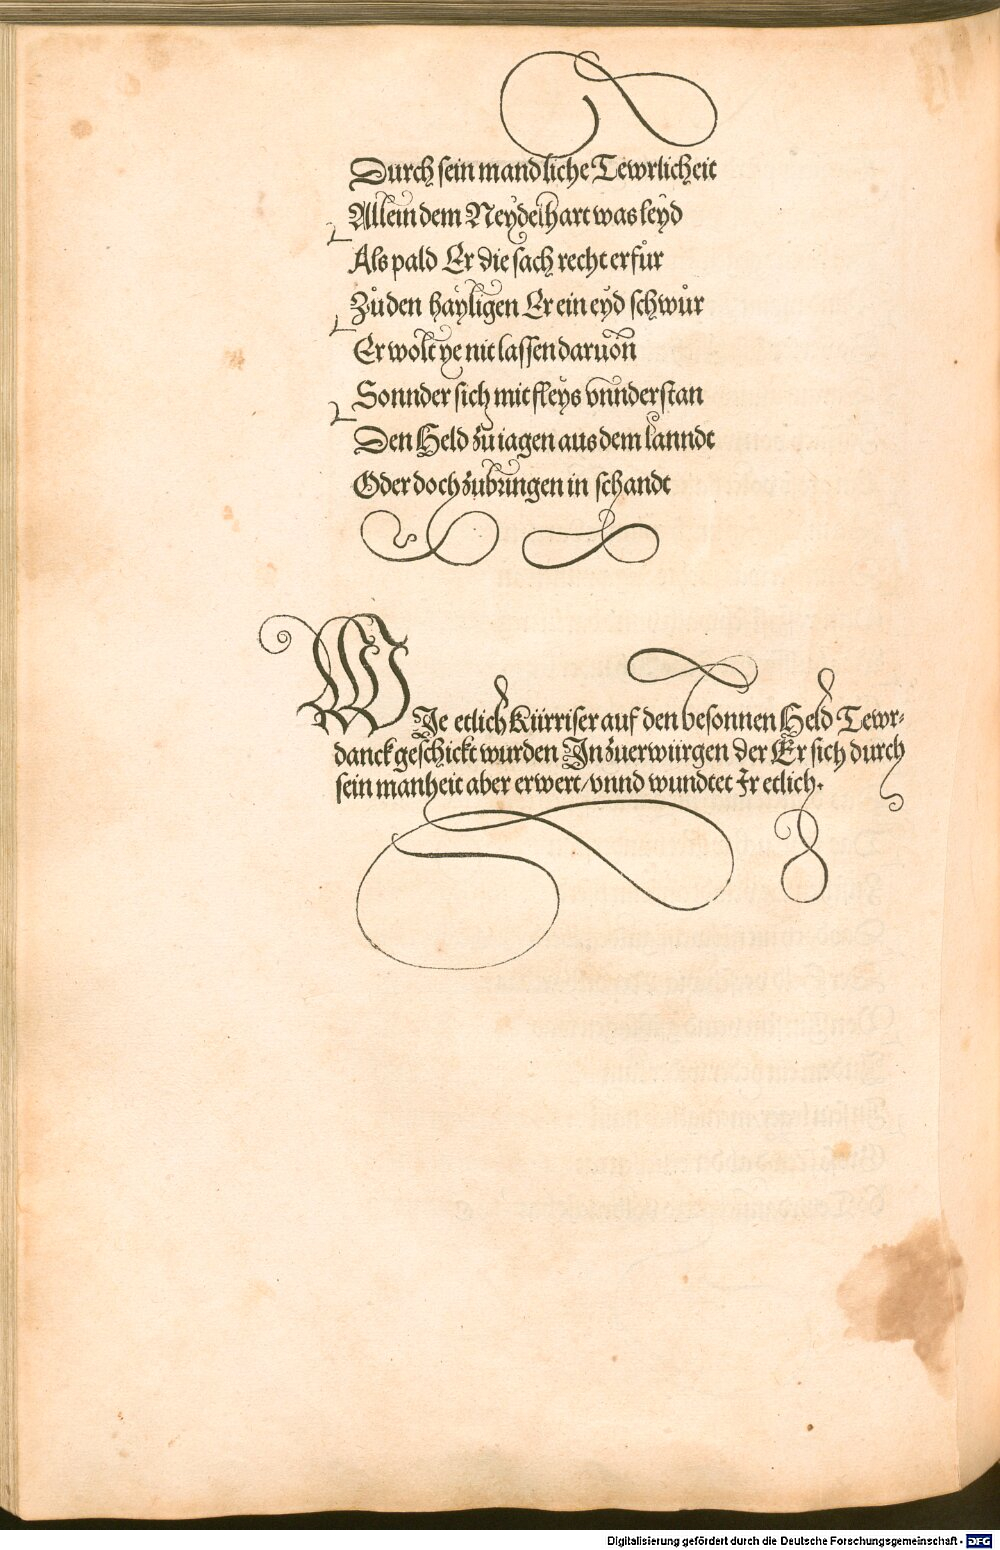 Durch sein mandliche Tewrlicheit
Allein dem Neydelhart was leyd
Als pald Er die sach recht erfůr
Zů den hayligen Er ein eyd schwůr
Er wolt ye nit lassen daruon
Sonnder sich mit fleys vnnderstan
Den Held zu iagen aus dem lanndt
Oder doch zubringen in schandt
WJe etlich Kürriser auf den besonnen Held Tewr⸗
danck geschickt wurden Jn zuerwürgen der Er sich durch
sein manheit aber erwert/vnnd wundtet Jr etlich.
Digitalisierung gefördert durch die Deutsche Forschungsgemeinschaft - DFG